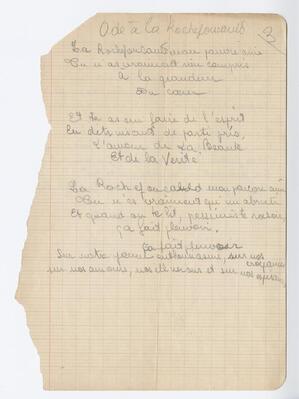 Ode à la Rochefoucauld
3
La Rochefoucauld mon pauvre ami
Tu n'as vraiment rien compris
A la grandeur
Du cœur
Et tu as su faire de l'esprit
En détruisant de parti pris
L'amour de La Beauté
Et de la Vérité
La Rochefoucauld mon pauvre ami
Tu n'es vraiment qu'un
Et quand on te lit, pessimiste
ça fait pleuvoir.
ça fait pleuvoir
Sur notre sur nos croyances
sur nos amours, nos et sur nos